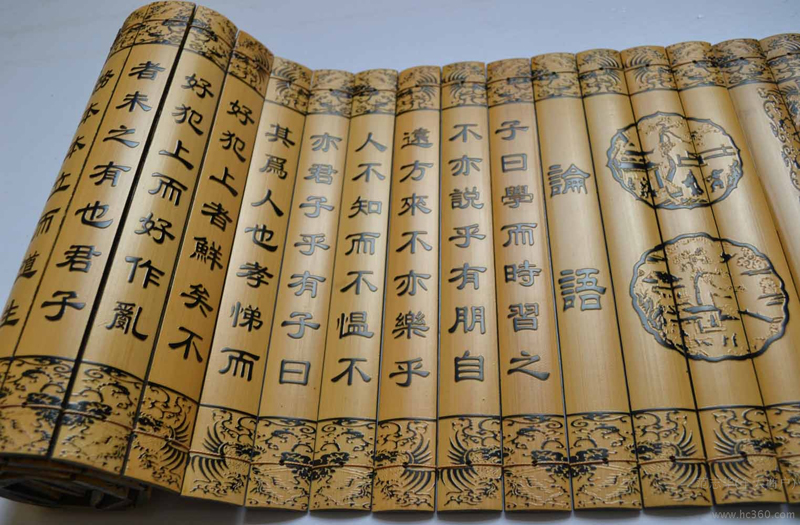 論語
子曰學而時習之
不亦說乎有朋自
遠方來不亦樂乎
人不知而不愠不
亦君子乎有子曰
其爲人也孝悌而
好犯上者鮮矣不
好犯上而好作亂
者未之有也君子
務本本立而道生
www.hc360.com